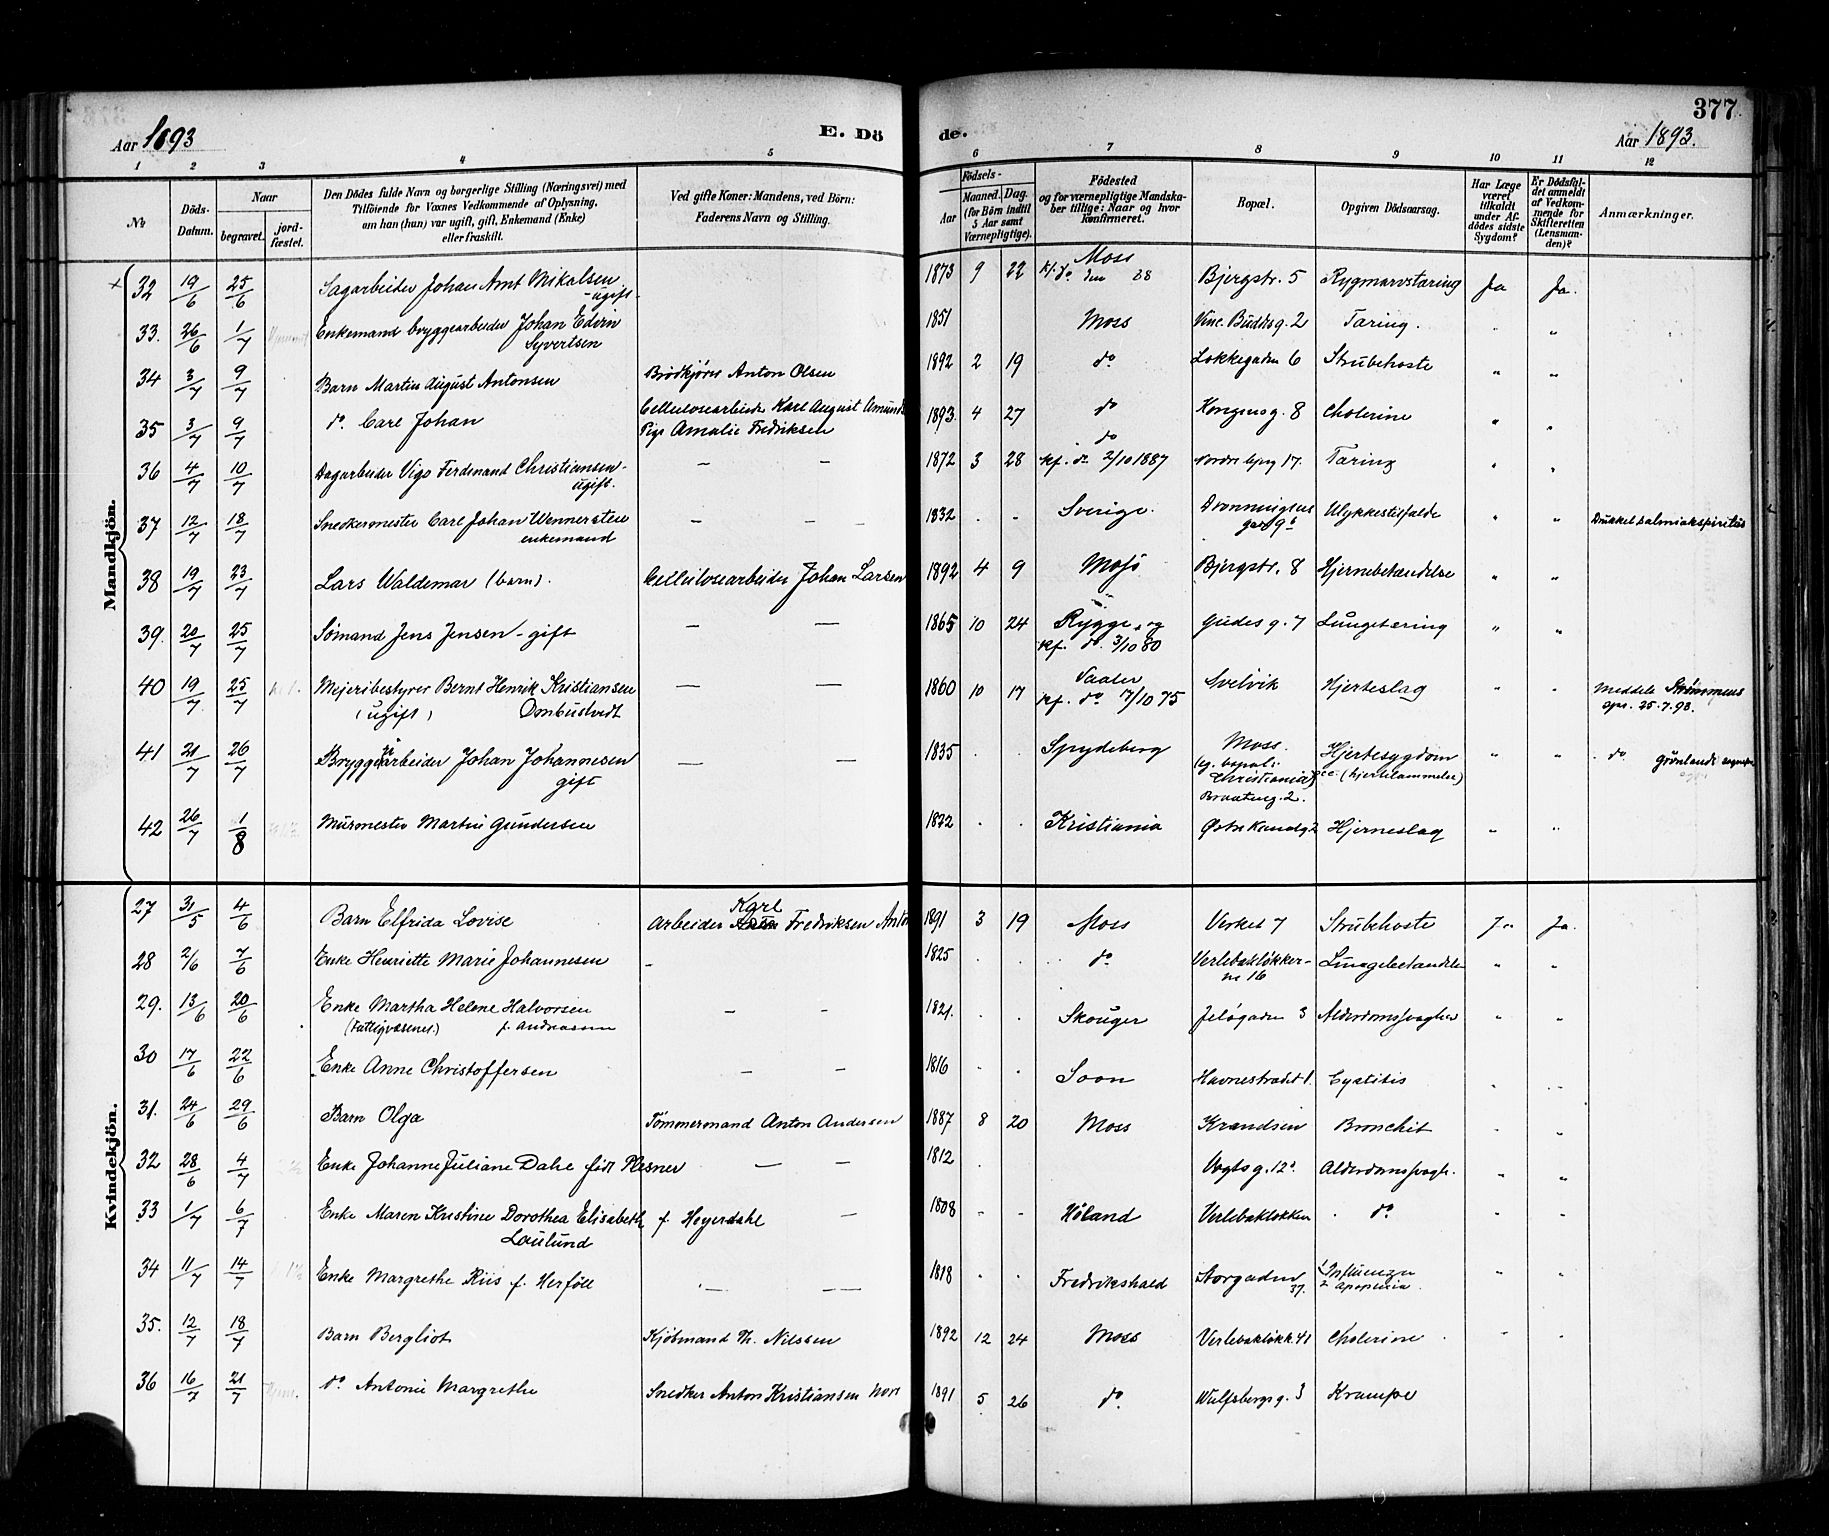 377
Aar 1893
E. Dö
de.
Aar 1893.
1 2 3 4 5 6 7 8 9 10 11 12
№
Döds-Datum.
Naar
begravet.
jord-fæstet.
Den Dödes fulde Navn og borgerlige Stilling (Næringsvei) med
Tilföiende for Voxnes Vedkommende af Oplysning,
om han (hun) var ugift, gift, Enkemand (Enke)
eller fraskilt.
Ved gifte Koner: Mandens, ved Börn:
Faderens Navn og Stilling.
Födsels-
Aar
Maaned. Dag.
(for Börn indtil
5 Aar samt
Værnepligtige).
Födested
og for værnepligtige Mandska-
ber tillige: Naar og hvor
Konfirmeret.
Bopæl.
Opgiven Dödsaarsag.
Har Læge
været
tilkaldt
under Af-
dödes sidste
Sygdom?
Er Dödsfal-
det anmeldt
af Vedkom-
mende for
Skifteretten
(Lensman-
den)?
Anmærkninger.
Mandkjön.
× 32 19/6 25/6 Sagarbeider Johan Arnt Mikalsen - ugift - 1873 9 22 Moss kf. do den 88 Bjergstr. 5 Rygmarvstæring Ja Ja.
33. 26/6 1/7 Enkemand bryggearbeider Johan Edvin Syvertsen 1851 Moss Vinc. Buddes g. 2 Tæring. " "
34 3/7 9/7 Barn Martin August Antonsen Brödkjörer Anton Olsen 1892 2 19 do Lokkegaden 6 Strubehoste " "
35 3/7 9/7 do. Carl Johan Cellulosearbeider Karl August Amunds Pige Amalie Fredriksen 1893. 4 27 do Kongens g. 8 Cholerine " "
36 4/7 10/7 Dagarbeider Vigo Ferdinand Christiansen - ugift. — — 1872 3 28 do kf. do 2/10 1887 Nordre bjerg 17. Tæring " "
37 12/7 18/7 Snedkermester Carl Johan Wennersten enkemand — — — 1832 . . Sverige. Dronningens gad 9b Ulykkestilfælde " " Drukket salmiakspiritus
38 19/7 23/7 Lars Waldemar (barn). Cellulosearbeider Johan Larsen 1892 4 9 Moss Bjergstr. 8 Hjernebetændelse " "
39. 20/7 25/7 Sömand Jens Jensen - gift — — 1865 10 24 Rygge og kf. do. 3/10 80 Gudes g. 7 Lungetæring " "
40 19/7 25/7 Mejeribestyrer Bernt Henrik Kristiansen (ugift) Ombustvedt — — 1860 10 17 Vaaler kf. do 7/10 75 Svelvik Hjerteslag " " Meddelt Strömmens spr. 25.7.93.
41 21/7 26/7 Bryggearbeider Johan Johannesen gift — — 1835 . . Spydeberg Moss. (eg. bopæl: Christiania) Braateng. 2. Hjertesygdom (hjertelammelse) " " . do Grönlands sogne
42 26/7 1/8 Murmester Martin Gundersen 1872 . . Kristiania Östre Kanalg 2 Hjerneslag " "
Kvindekjön.
27 31/5 4/6 Barn Elfrida Lovise Arbeider Karl Fredriksen Anton 1891 3 19 Moss Verket 7 Strubehoste Ja Ja.
28 2/6 7/6 Enke Henriette Marie Johannesen - 1825 . . do Verlebaklökkerne 16 Lungebetændelse " "
29. 13/6 20/6 Enke Martha Helene Halvorsen (Fattigvæsenet.) f. Andreasen — - 1821. . . Skouger Jelögaden 3 Alderdomssvaghed " "
30 17/6 22/6 Enke Anne Christoffersen — — 1816 . . Soon Havnestrædet 1. Cystitis
31. 24/6 29/6 Barn Olga Tömmermand Anton Andersen 1887 8 20 Moss Krandsen Bronchit
32 28/6 4/7 Enke Johanne Juliane Dahl födt Plesner — — 1812 . Vogts g. 12a. Alderdomssvagh. " "
33 1/7 6/7 Enke Maren Kristine Dorothea Elisabeth Laulund f. Heyerdahl — 1808 - - Höland Verlebaklökken . do " "
34 11/7 14/7 Enke Margrethe Riis f. Herföll . — — — 1818 . . Fredrikshald Storgaden 37. 1 Influenza 2 apoplexia " "
35. 12/7 18/7 Barn Bergliot Kjöbmand Th. Nilssen 1892 12 24 Moss Verlebaklökk. 41 Cholerine . " "
36 16/7 21/7 do. Antonie Margrethe Snedker Anton Kristiansen 1891 5 26 do. Wulfsbergs g. 3 Krampe